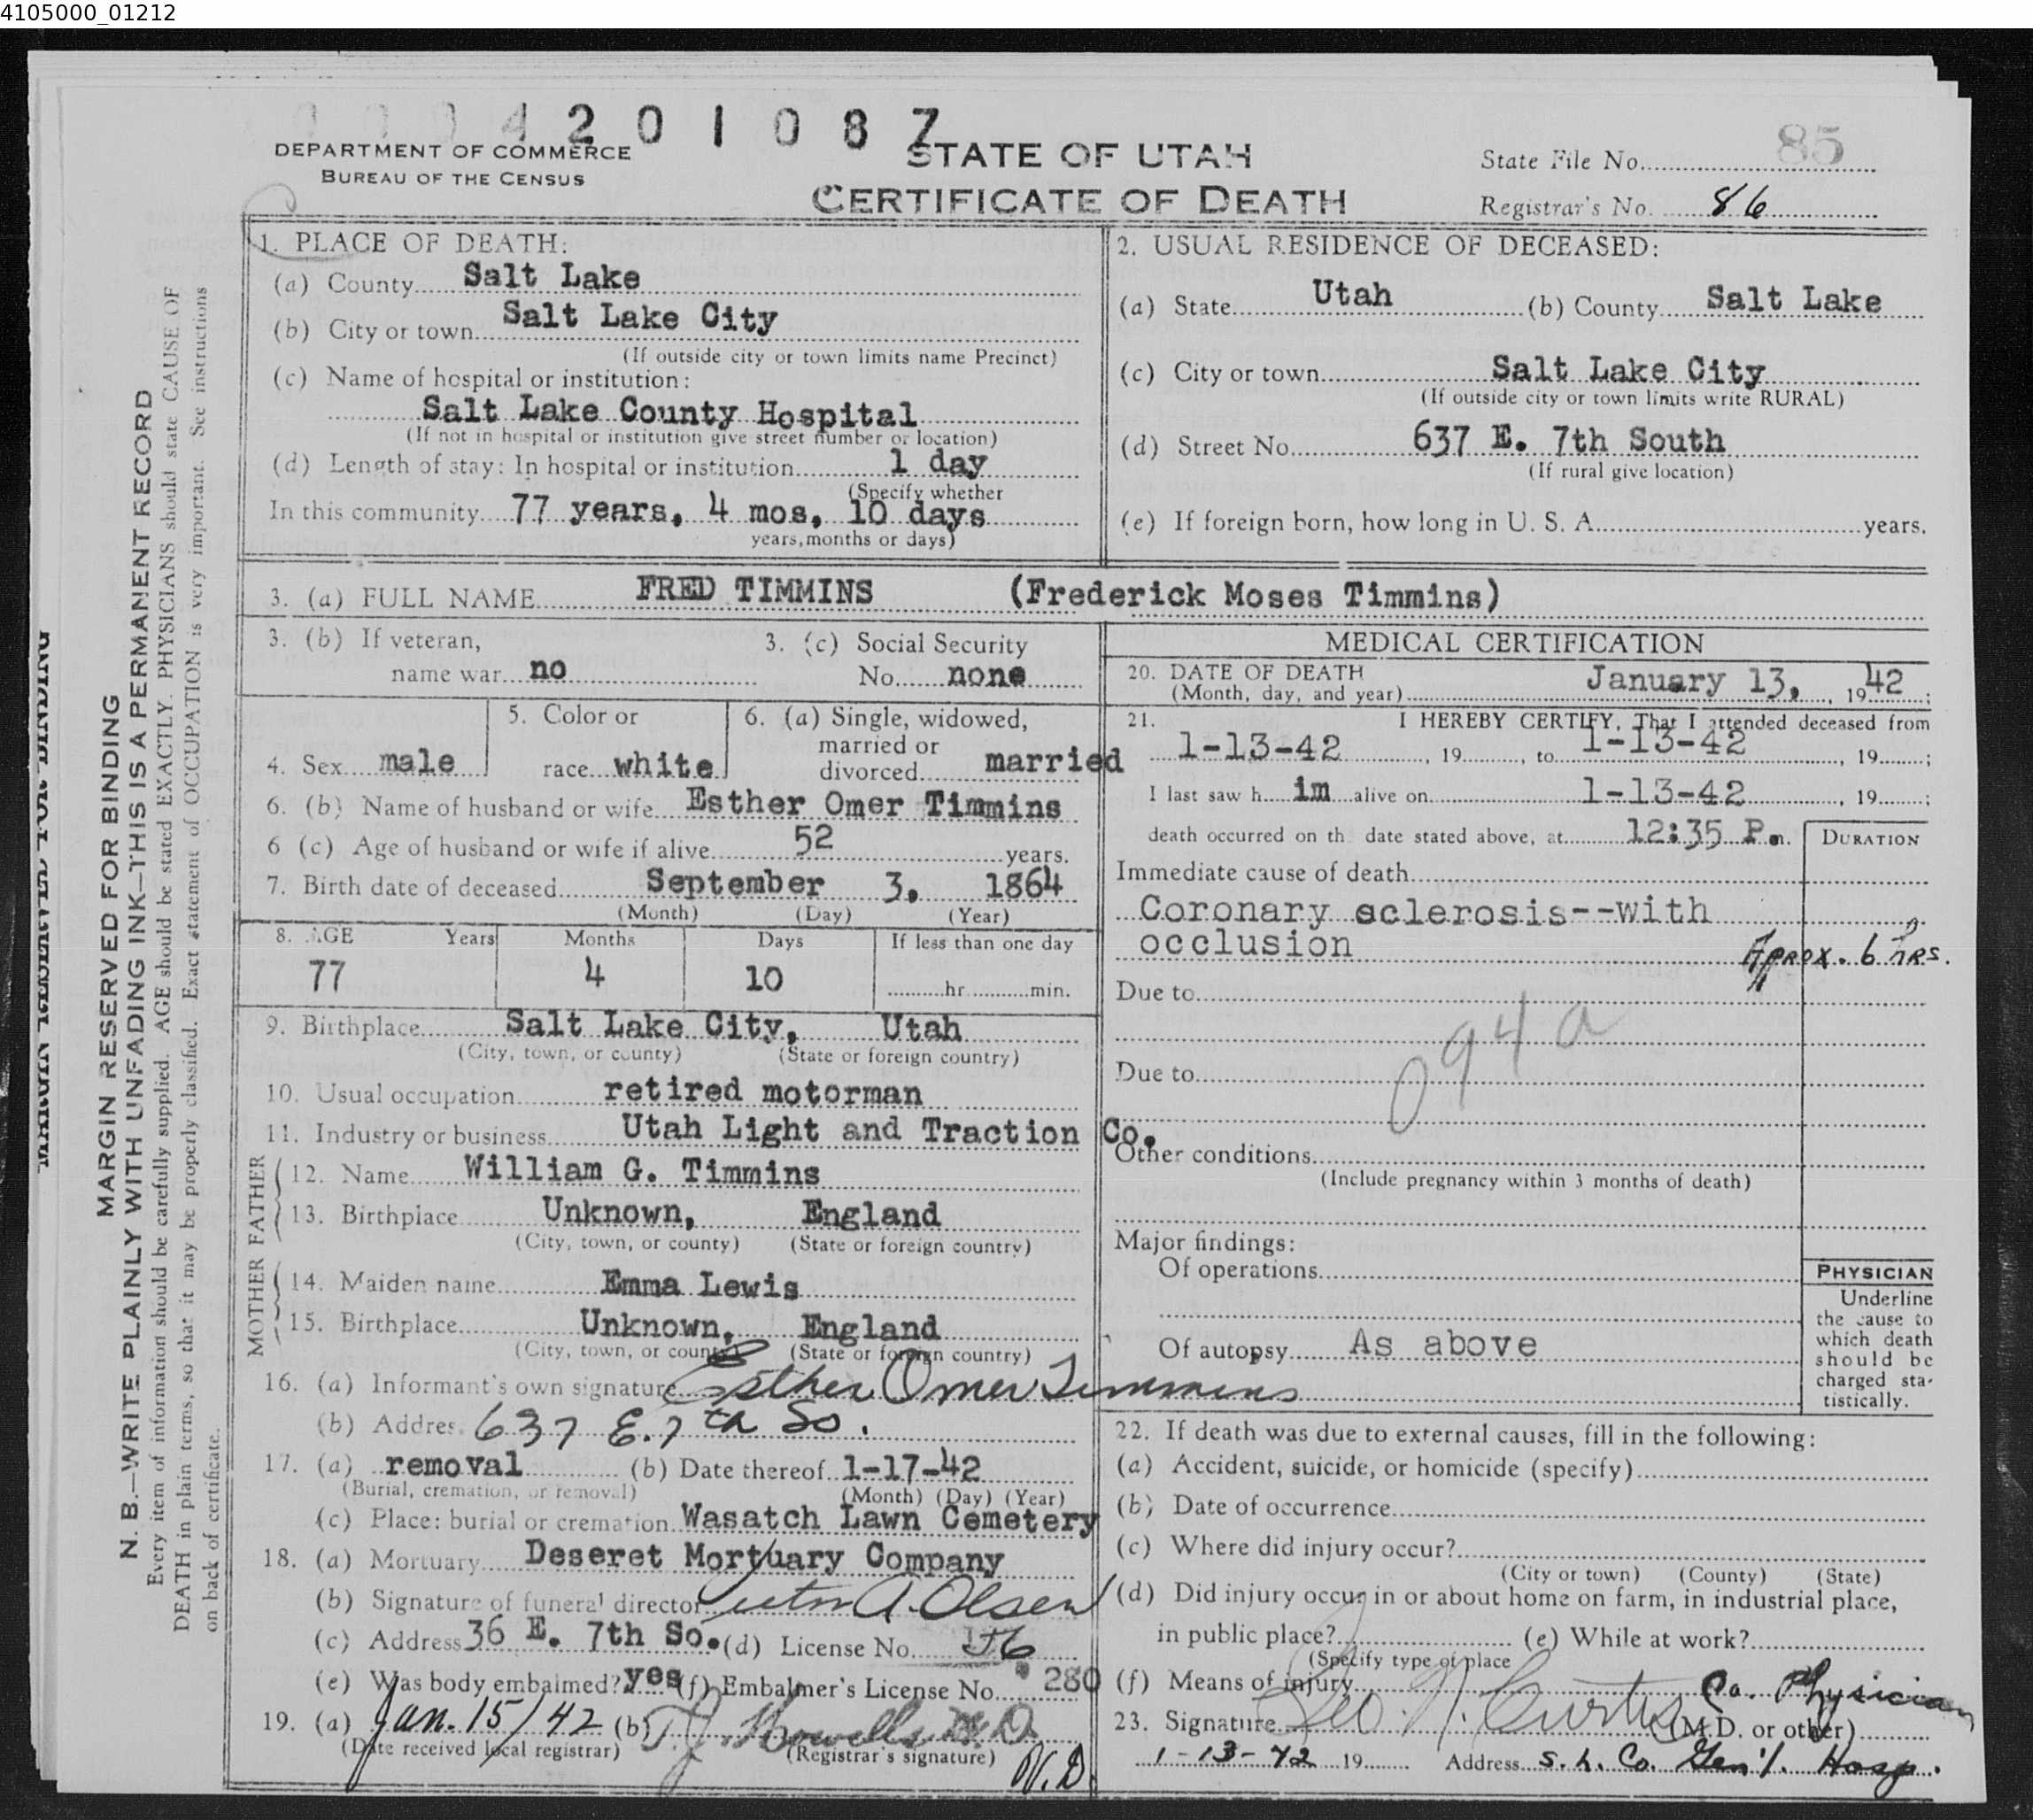 4105000_01212
0004201087
DEPARTMENT OF COMMERCE
BUREAU OF THE CENSUS
STATE OF UTAH
CERTIFICATE OF DEATH
State File No. 85
Registrar's No. 86
MARGIN RESERVED FOR BINDING
N. B.—WRITE PLAINLY WITH UNFADING INK—THIS IS A PERMANENT RECORD
Every item of information should be carefully supplied. AGE should be stated EXACTLY. PHYSICIANS should state CAUSE OF
DEATH in plain terms, so that it may be properly classified. Exact statement of OCCUPATION is very important. See instructions
on back of certificate.
1. PLACE OF DEATH:
(a) County Salt Lake
(b) City or town Salt Lake City
(If outside city or town limits name Precinct)
(c) Name of hospital or institution:
Salt Lake County Hospital
(If not in hospital or institution give street number or location)
(d) Length of stay: In hospital or institution 1 day
(Specify whether
In this community 77 years, 4 mos, 10 days
years, months or days)
2. USUAL RESIDENCE OF DECEASED:
(a) State Utah (b) County Salt Lake
(c) City or town Salt Lake City
(If outside city or town limits write RURAL)
(d) Street No. 637 E. 7th South
(If rural give location)
(e) If foreign born, how long in U. S. A. years.
3. (a) FULL NAME FRED TIMMINS (Frederick Moses Timmins)
3. (b) If veteran,
name war no
3. (c) Social Security
No. none
4. Sex male
5. Color or
race white
6. (a) Single, widowed,
married or
divorced married
6. (b) Name of husband or wife Esther Omer Timmins
6 (c) Age of husband or wife if alive 52 years.
7. Birth date of deceased September 3, 1864
(Month) (Day) (Year)
8. AGE Years Months Days If less than one day
77 4 10 hr. min.
9. Birthplace Salt Lake City, Utah
(City, town, or county) (State or foreign country)
10. Usual occupation retired motorman
11. Industry or business Utah Light and Traction Co.
FATHER
12. Name William G. Timmins
13. Birthplace Unknown, England
(City, town, or county) (State or foreign country)
MOTHER
14. Maiden name Emma Lewis
15. Birthplace Unknown, England
(City, town, or county) (State or foreign country)
16. (a) Informant's own signature Esther Omer Timmins
(b) Addres 637 E. 7th So.
17. (a) removal (b) Date thereof 1-17-42
(Burial, cremation, or removal) (Month) (Day) (Year)
(c) Place: burial or cremation Wasatch Lawn Cemetery
18. (a) Mortuary Deseret Mortuary Company
(b) Signature of funeral director A. Olsen
(c) Address 36 E. 7th So. (d) License No. 56
(e) Was body embalmed? yes (f) Embalmer's License No. 280
19. (a) Jan. 15/42 (b) T. J. Howells M. D.
(Date received local registrar) (Registrar's signature)
MEDICAL CERTIFICATION
20. DATE OF DEATH
(Month, day, and year) January 13, 1942;
21. I HEREBY CERTIFY, That I attended deceased from
1-13-42, 19, to 1-13-42, 19;
I last saw him alive on 1-13-42, 19;
death occurred on th date stated above, at 12:35 P.m.
DURATION
Immediate cause of death
Coronary sclerosis--with
occlusion Aprox. 6 hrs.
Due to
094a
Due to
Other conditions
(Include pregnancy within 3 months of death)
Major findings:
Of operations
Of autopsy As above
PHYSICIAN
Underline
the cause to
which death
should be
charged sta-
tistically.
22. If death was due to external causes, fill in the following:
(a) Accident, suicide, or homicide (specify)
(b) Date of occurrence
(c) Where did injury occur?
(City or town) (County) (State)
(d) Did injury occur in or about home on farm, in industrial place,
in public place? (e) While at work?
(Specify type of place
(f) Means of injury Co. Physician
23. Signature Geo. N. Curtis (M.D. or other)
1-13-42 19 Address S. L. Co. Gen'l. Hosp.